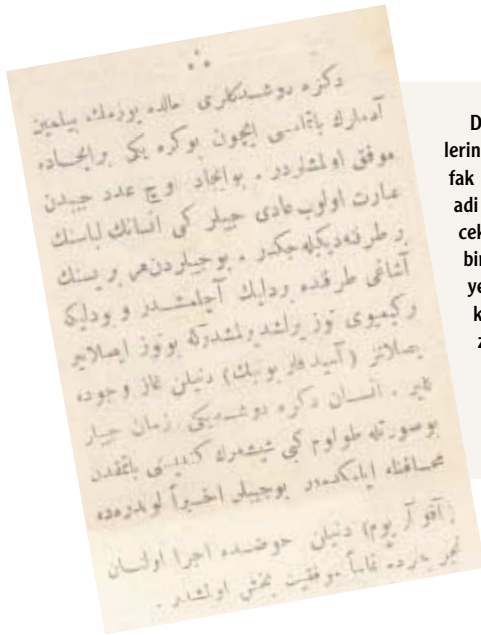 دكزه دوشدكلرى حالده يوزمك بيلمين
آدملرك باتمامسى ايچون بوكره يكى برايجاده
موفق اولمشلردر . بوايجاد اوچ عدد جيبدن
عبارت اولوب عادى جيبلر كبى انسانك لباسنك
بر طرفنه ديكيله جكدر . بوجيبلردن هر بريسنك
آشاغى طرفنده بردليك آچلمشدر و بودليكه
بر كيميوى توز يرلشديرلمشدركه بوتوز ايصلانير
ايصلانماز (آسيد قاربونيك) دنيلن غاز وجوده
كلير . انسان دكزه دوشديكى زمان جيبلر
بوصورتله طولوم كبى شيشه رك كنديسنى باتمقدن
محافظه ايده جكدر بوجيبلر اخيراً لوندره ده
(آقوآريوم) دنيلن حوضده اجرا اولنان
تجربه لرده تماماً موفقيت بخش اولمشدر .
D
lerin
fak
adi
cek
bir
ye
k
z